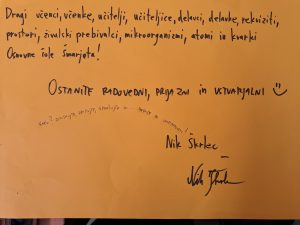 Dragi učenci, učenke, učitelji, učiteljice, delavci, delavke, rekviziti,
prostori, živalski prebivalci, mikroorganizmi, atomi in kvarki
Osnovne šole Šmarjeta!
OSTANITE RADOVEDNI, PRIJAZNI IN USTVARJALNI
Nik Škrlec